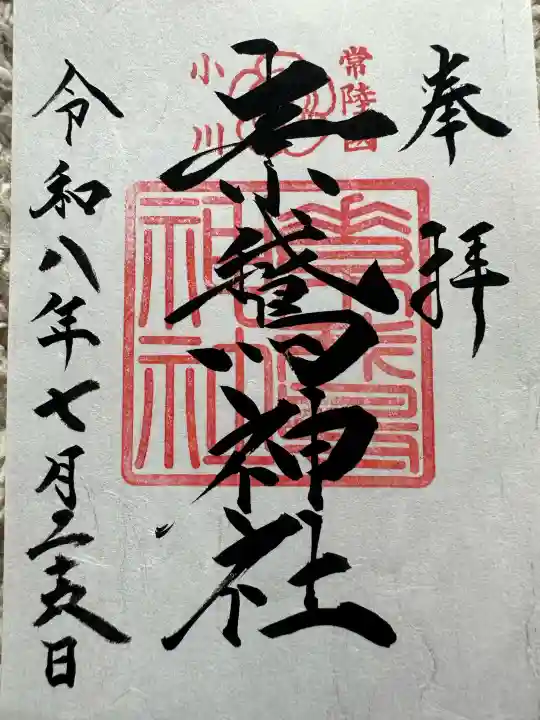 奉拝
常陸国
小川
素鵞神社
素鵞神社
令和八年七月二十五日